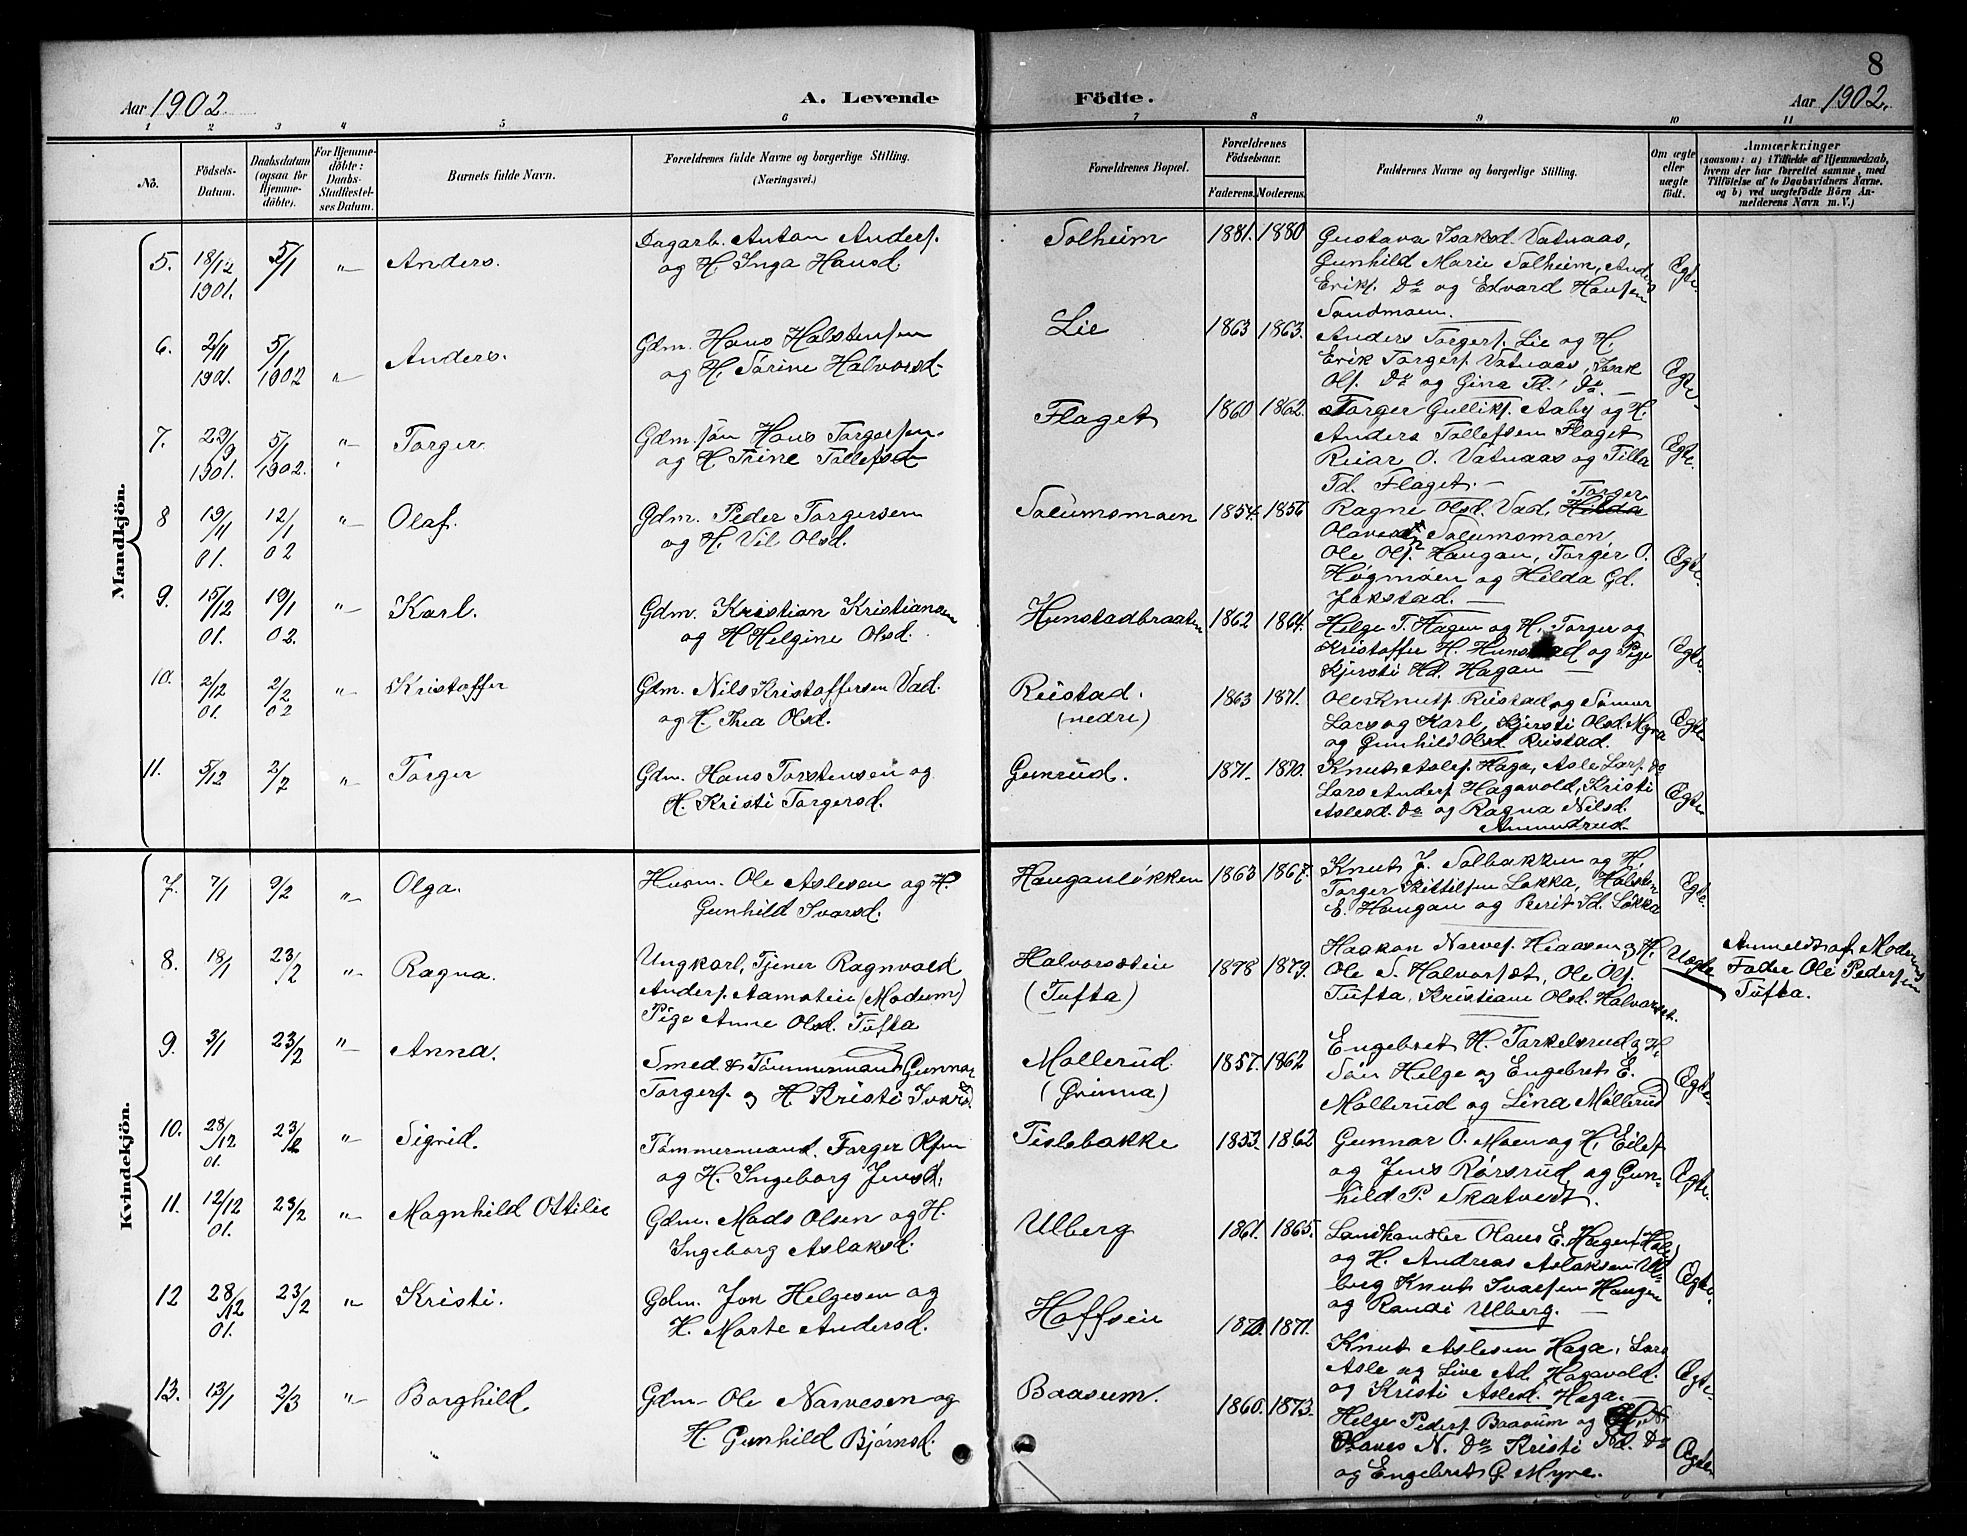 8
Aar 1902. A. Levende Födte. Aar 1902.
1 2 3 4 5 6 7 8 9 10 11
No.
Födsels-
Datum.
Daabsdatum
(ogsaa for
Hjemme-
döbte).
For Hjemme-
döbte:
Daabs-
Stadfæstel-
ses Datum.
Barnets fulde Navn.
Forældrenes fulde Navne og borgerlige Stilling.
(Næringsvei.)
Forældrenes Bopæl.
Forældrenes
Födselsaar.
Faderens. Moderens.
Faddernes Navne og borgerlige Stilling.
Om ægte
eller
uægte
født.
Anmærkninger
(saasom: a) i Tilfælde af Hjemmedaab,
hvem der har forrettet samme, med
Tilföielse af to Daabsvidners Navne.
og b) ved uægtefödte Börn An-
melderens Navn m. V.)
Mandkjön.
5. 18/12 1901. 5/1 " Anders.
Dagarb. Anton Anders.
og H. Inga Hansd.
Solheim 1881. 1880
Gustava Isaksd. Vatnaas,
Gunhild Marie Solheim, Anders
Eriks. Do og Edvard Hansen
Sandmoen.
Ægte.
6. 2/11 1901. 5/1 1902 " Anders.
Gdm. Hans Halstensen
og H. Sørine Halvorsd.
Lie 1863 1863.
Anders Torgers. Lie og H.
Erik Torgers. Vatnaas, Isak
Ols. Do og Gina Td. Do.
Ægte.
7. 29/9 1901. 5/1 1902. " Torger
Gdm. søn Hans Torgersen
og H. Trine Tollefsd.
Flaget 1860 1862.
Torger Gulliks. Aaby og H.
Anders Tollefsen Flaget
Reiar O. Vatnaas og Tilla
Td. Flaget.
Ægte.
8 19/11 01. 12/1 02 " Olaf.
Gdm. Peder Torgersen
og H. Vil Olsd.
Solumsmoen 1854. 1856
Ragne Olsd. Vad, Hilda Torger
Solumsmoen,
Ole Ols. Haugan, Torger O.
Høgmoen og Hilda Gd.
Jokstad.
Ægte.
9. 15/12 01. 19/1 02. " Karl.
Gdm. Kristian Kristiansen
og H Helgine Olsd.
Hunstadbraaten 1862 1864.
Helge T. Hagen og H. Torger og
Kristoffer H. Hunstad og Pige
Kjersti Hd. Hagan
Ægte.
10. 2/12 01. 2/2 02 " Kristoffer
Gdm. Nils Kristoffersen Vad.
og H. Thea Olsd.
Reistad.
(nedre)
1863 1871.
Ole Knuts. Reistad og Sønner
Lars og Karl, Kjersti Olsd. Myra
og Gunhild Olsd. Reistad.
Ægte
11. 5/12 2/2 " Torger
Gdm. Hans Torstensen og
H. Kristi Torgersd.
Gunrud. 1871. 1870.
Knut Asles. Haga, Asle Lars. Do
Lars Anders. Hagavold, Kristi
Aslesd. Do og Ragna Nilsd.
Amundrud.
Ægte
Kvindekjön.
7. 7/1 9/2 " Olga.
Husm. Ole Aslesen og H.
Gunhild Ivarsd.
Hauganløkken 1863 1867.
Knut J. Solbakken og H.
Torger Kittilsen Løkka, Halsten
E. Haugan og Berit Sd. Løkka
Ægte.
8. 18/1 23/2 " Ragna.
Ungkarl, Tjener Ragnvald
Anders. Aamoteie (Modum)
Pige Anne Olsd. Tufta
Halvorsæteie
(Tufta)
1878 1879.
Haakon Narves. Hiaasen og H.
Ole S. Halvorsæt, Ole Ols.
Tufta, Kristiane Olsd. Halvorset.
Uægte
Anmeldt af Moderens
Fader Ole Pedersen
Tufta.
9. 3/1 23/2 " Anna.
Smed & Tømmermand Gunnar
Torgers. og H. Kristi Ivarsd.
Møllerud
(Grinna)
1857. 1862
Engebret H. Torkelsrud og H.
Søn Helge og Engebret E.
Møllerud og Lina Møllerud
Ægte.
10. 28/12 01. 23/2 " Sigrid.
Tømmermand. Torger Olsen
og H. Ingeborg Jensd.
Tislebakke 1853. 1862
Gunnar O. Moen og H. Eilef
og Jens Rørsrud, og Gun-
hild P. Skatvedt.
Ægte.
11. 12/12 01. 23/2 " Magnhild Ottilie
Gdm. Mads Olsen og H.
Ingeborg Aslaksd.
Ulberg 1861. 1865.
Landhandler Olaus E. Hagen
og H. Andreas Aslaksen Ul-
berg Knut Ivarsen Haugen
og Randi Ulberg.
Ægte.
12 28/12 01. 23/2 " Kristi.
Gdm. Jon Helgesen og
H. Marte Andersd.
Hoffseie 1870. 1871.
Knut Aslesen Haga, Lars
Asle og Live Ad. Hagavold.
og Kristi Aslesd. Haga.
Ægte.
13. 13/1 2/3 " Borghild.
Gdm. Ole Narvesen og
H. Gunhild Bjørnsd.
Baasum. 1860. 1873.
Helge Peders. Baasum og
Olaves N. Do Kristi Nd. Do
og Engebret G. Myre.
Ægte